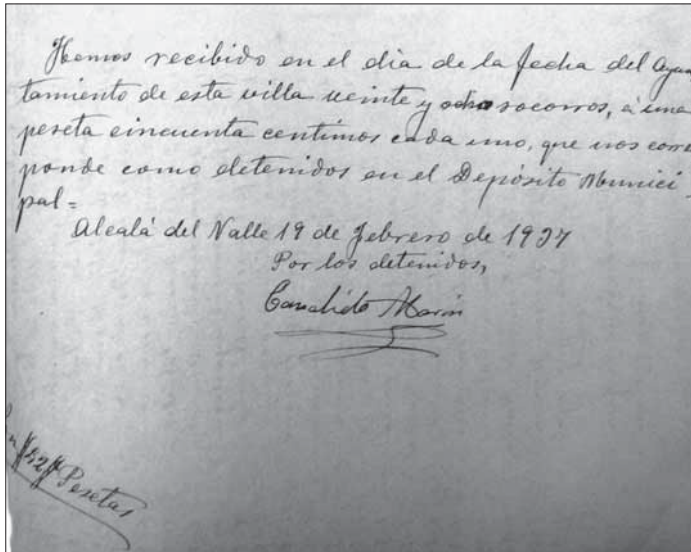 Hemos recibido en el dia de la fecha del Ayun
tamiento de esta villa veinte y ocho socorros, á una
peseta cincuenta centimos cada uno, que nos corres
ponde como detenidos en el Depósito Munici-
pal=
Alcalá del Valle 19 de Febrero de 1937
Por los detenidos,
Candido Marin
#42# Pesetas